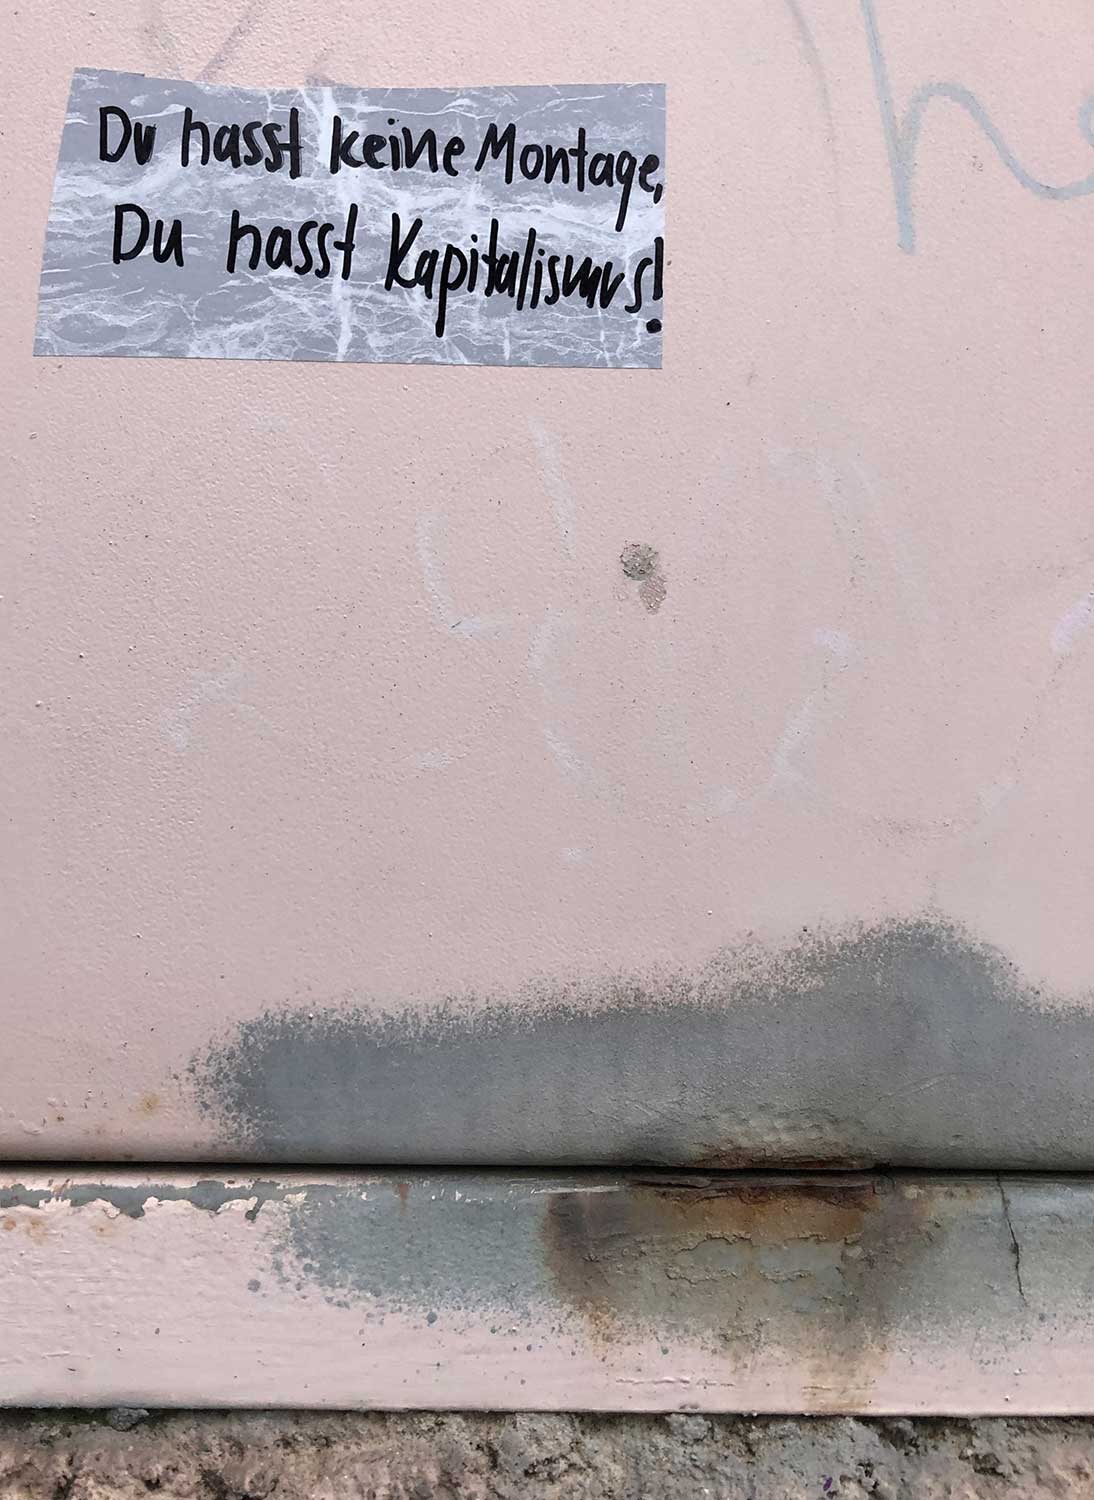 Du hasst keine Montage,
Du hasst Kapitalismus!